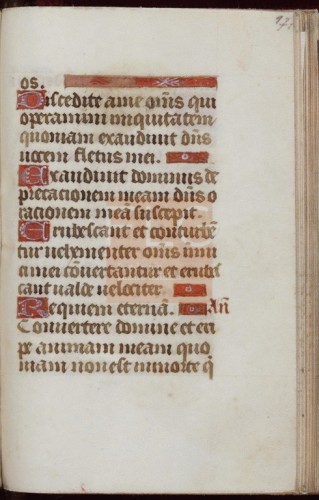 os.
Discedite a me om̄s qui
operamini iniquitatem
quoniam exaudiuit dn̄s
uocem fletus mei.
Exaudiuit dominus de
precationem meam dn̄s o
rationem meā suscepit.
Erubescant et conturbē
tur uehementer om̄s inim
ci mei cōuertantur et erubes
cant ualde uelociter.
Requiem eternā. An̄
Conuertere domine et eri
pe animam meam quo
niam non est in morte q̄